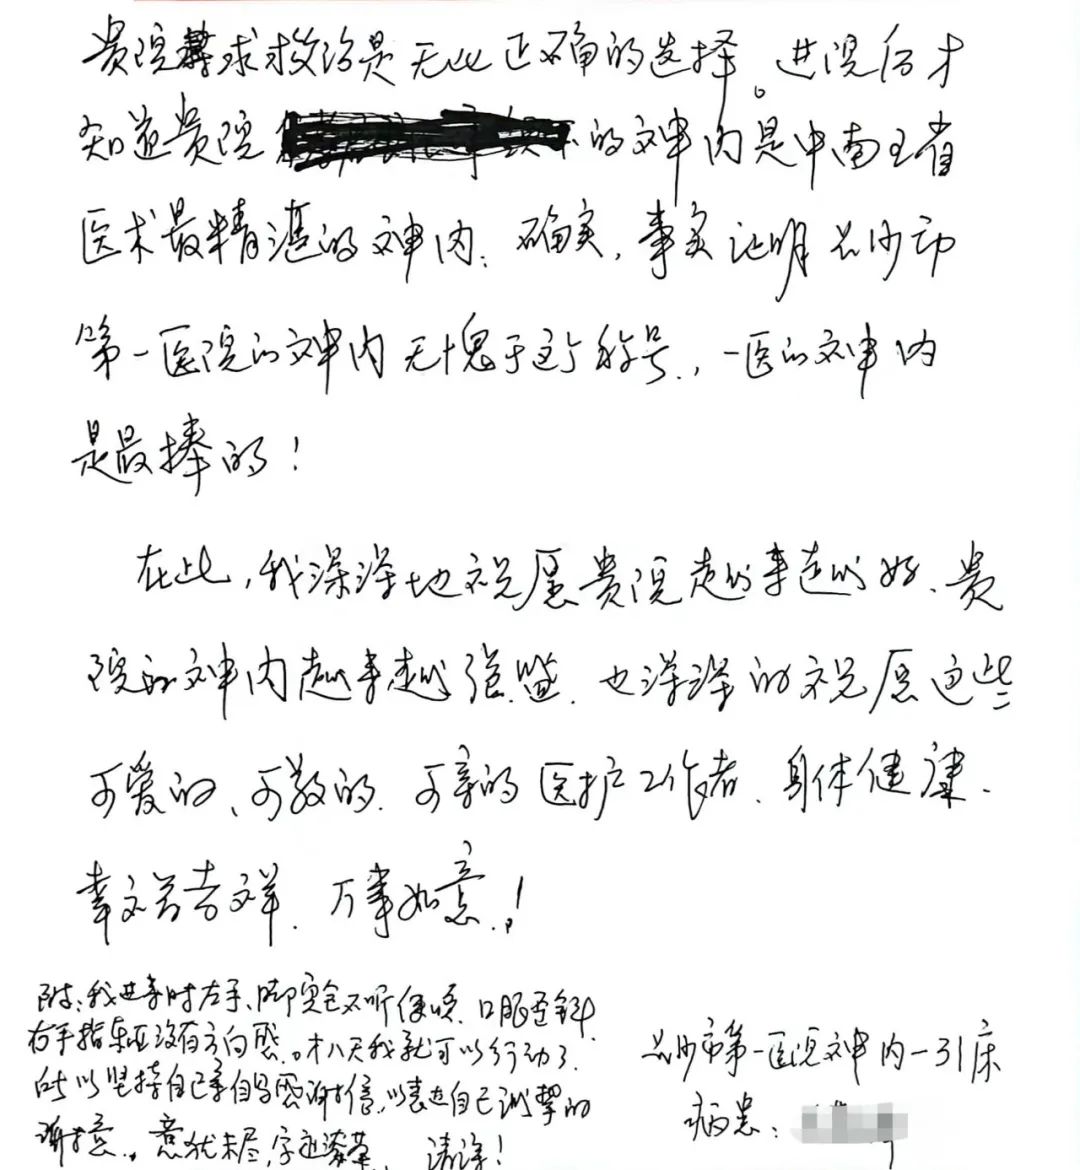 贵院寻求救治是无比正确的选择。进院后才
知道贵院的神内是中南五省
医术最精湛的神内。确实，事实证明长沙市
第一医院的神内无愧于这个称号，一医的神内
是最捧的！
在此，我深深地祝愿贵院越来越好、贵
院的神内越来越强盛。也深深的祝愿这些
可爱的、可敬的、可亲的医护工作者、身体健康、
幸福吉祥、万事如意！
附：我进来时左手、脚完全不听使唤、口眼歪斜、
右手指东西没有方向感。才八天我就可以行动了
所以坚持自己亲自写感谢信，以表达自己诚挚的
谢意。意犹未尽，字迹潦草、请谅！
长沙市第一医院神内一31床
病患：